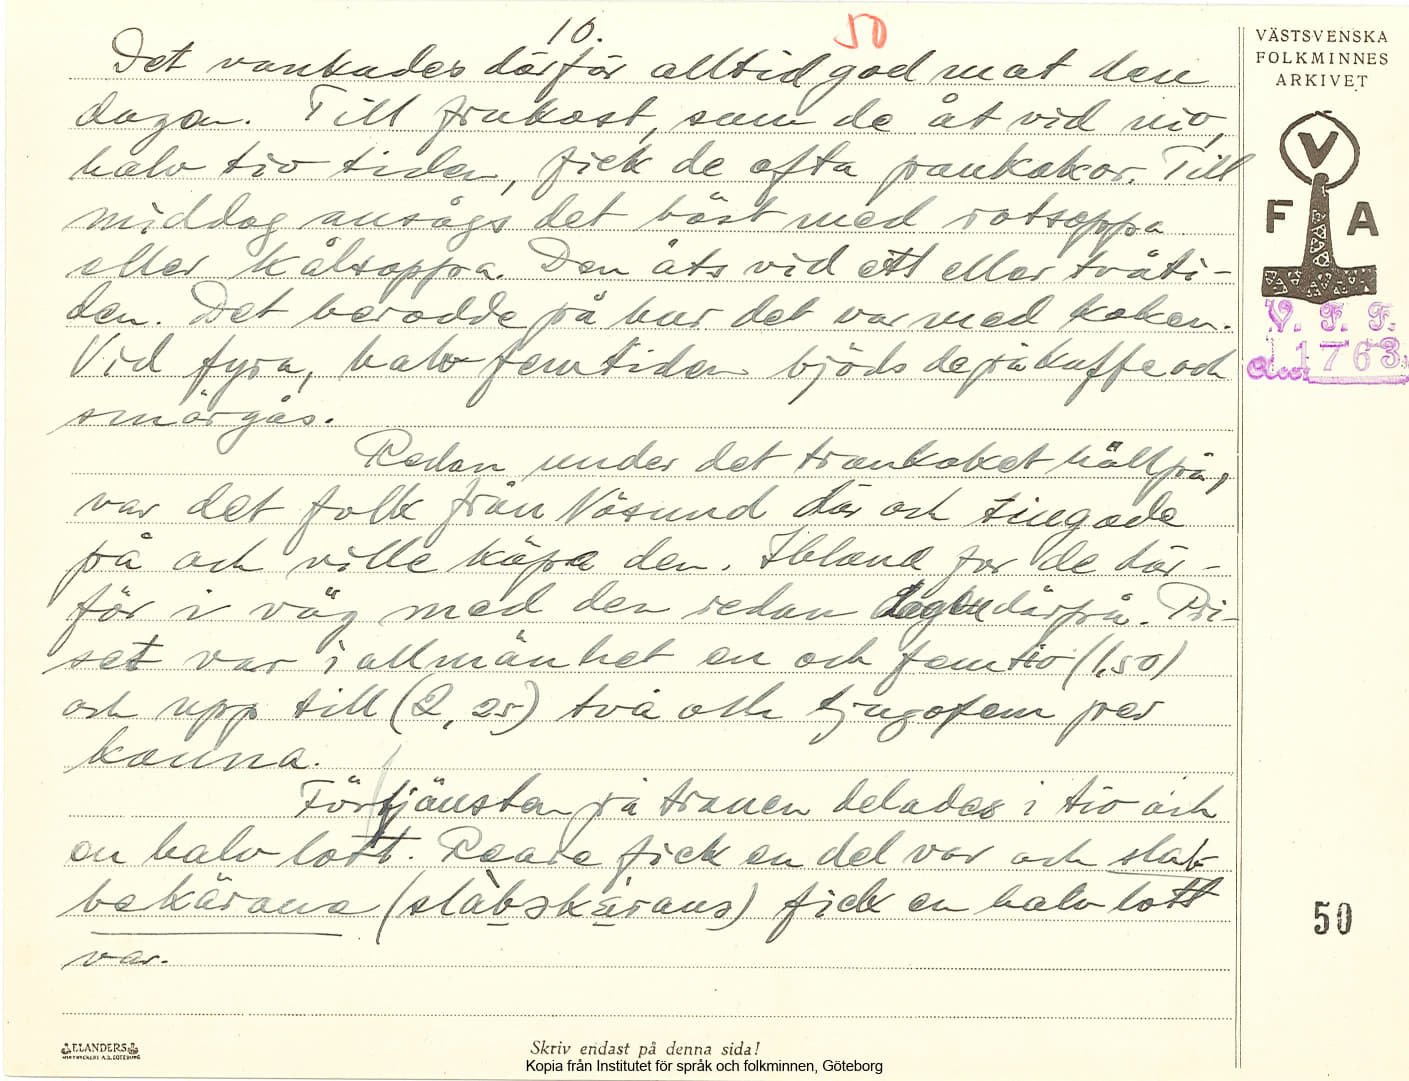 10.
50
Det vankades därför alltid god mat den
dagen. Till frukost, som de åt vid nio,
halv tio tiden, fick de ofta pankakor. Till
middag ansågs det bäst med rotsoppa
eller kålsoppa. Den åts vid ett eller tvåti-
den. Det berodde på hur det var med koken.
Vid fyra, halv femtiden bjöds de på kaffe och
smörgås.
Redan under det trankoket höll på,
var det folk från Nösund där och tingade
på och ville köpa den. Ibland for de där-
för i väg med den redan dagen därpå. Pri-
set var i allmänhet en och femtio (1,50)
och upp till (2,25) två och tjugofem per
kanna.
Förtjänsten på tranen delades i tio och
en halv lott. Redare fick en del var och slab-
bekärana (slàbskä̀rans) fick en halv lott
var.
VÄSTSVENSKA
FOLKMINNES
ARKIVET
V
F A
V. F. F.
1763
50
ELANDERS
Skriv endast på denna sida!
Kopia från Institutet för språk och folkminnen, Göteborg